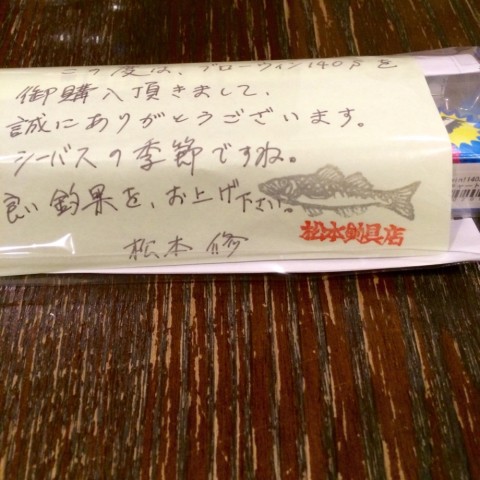 この度は、ブローウィン140Sを
御購入頂きまして、
誠にありがとうございます。
シーバスの季節ですね。
良い釣果を、お上げ下さい。
松本釣具店
松本 修